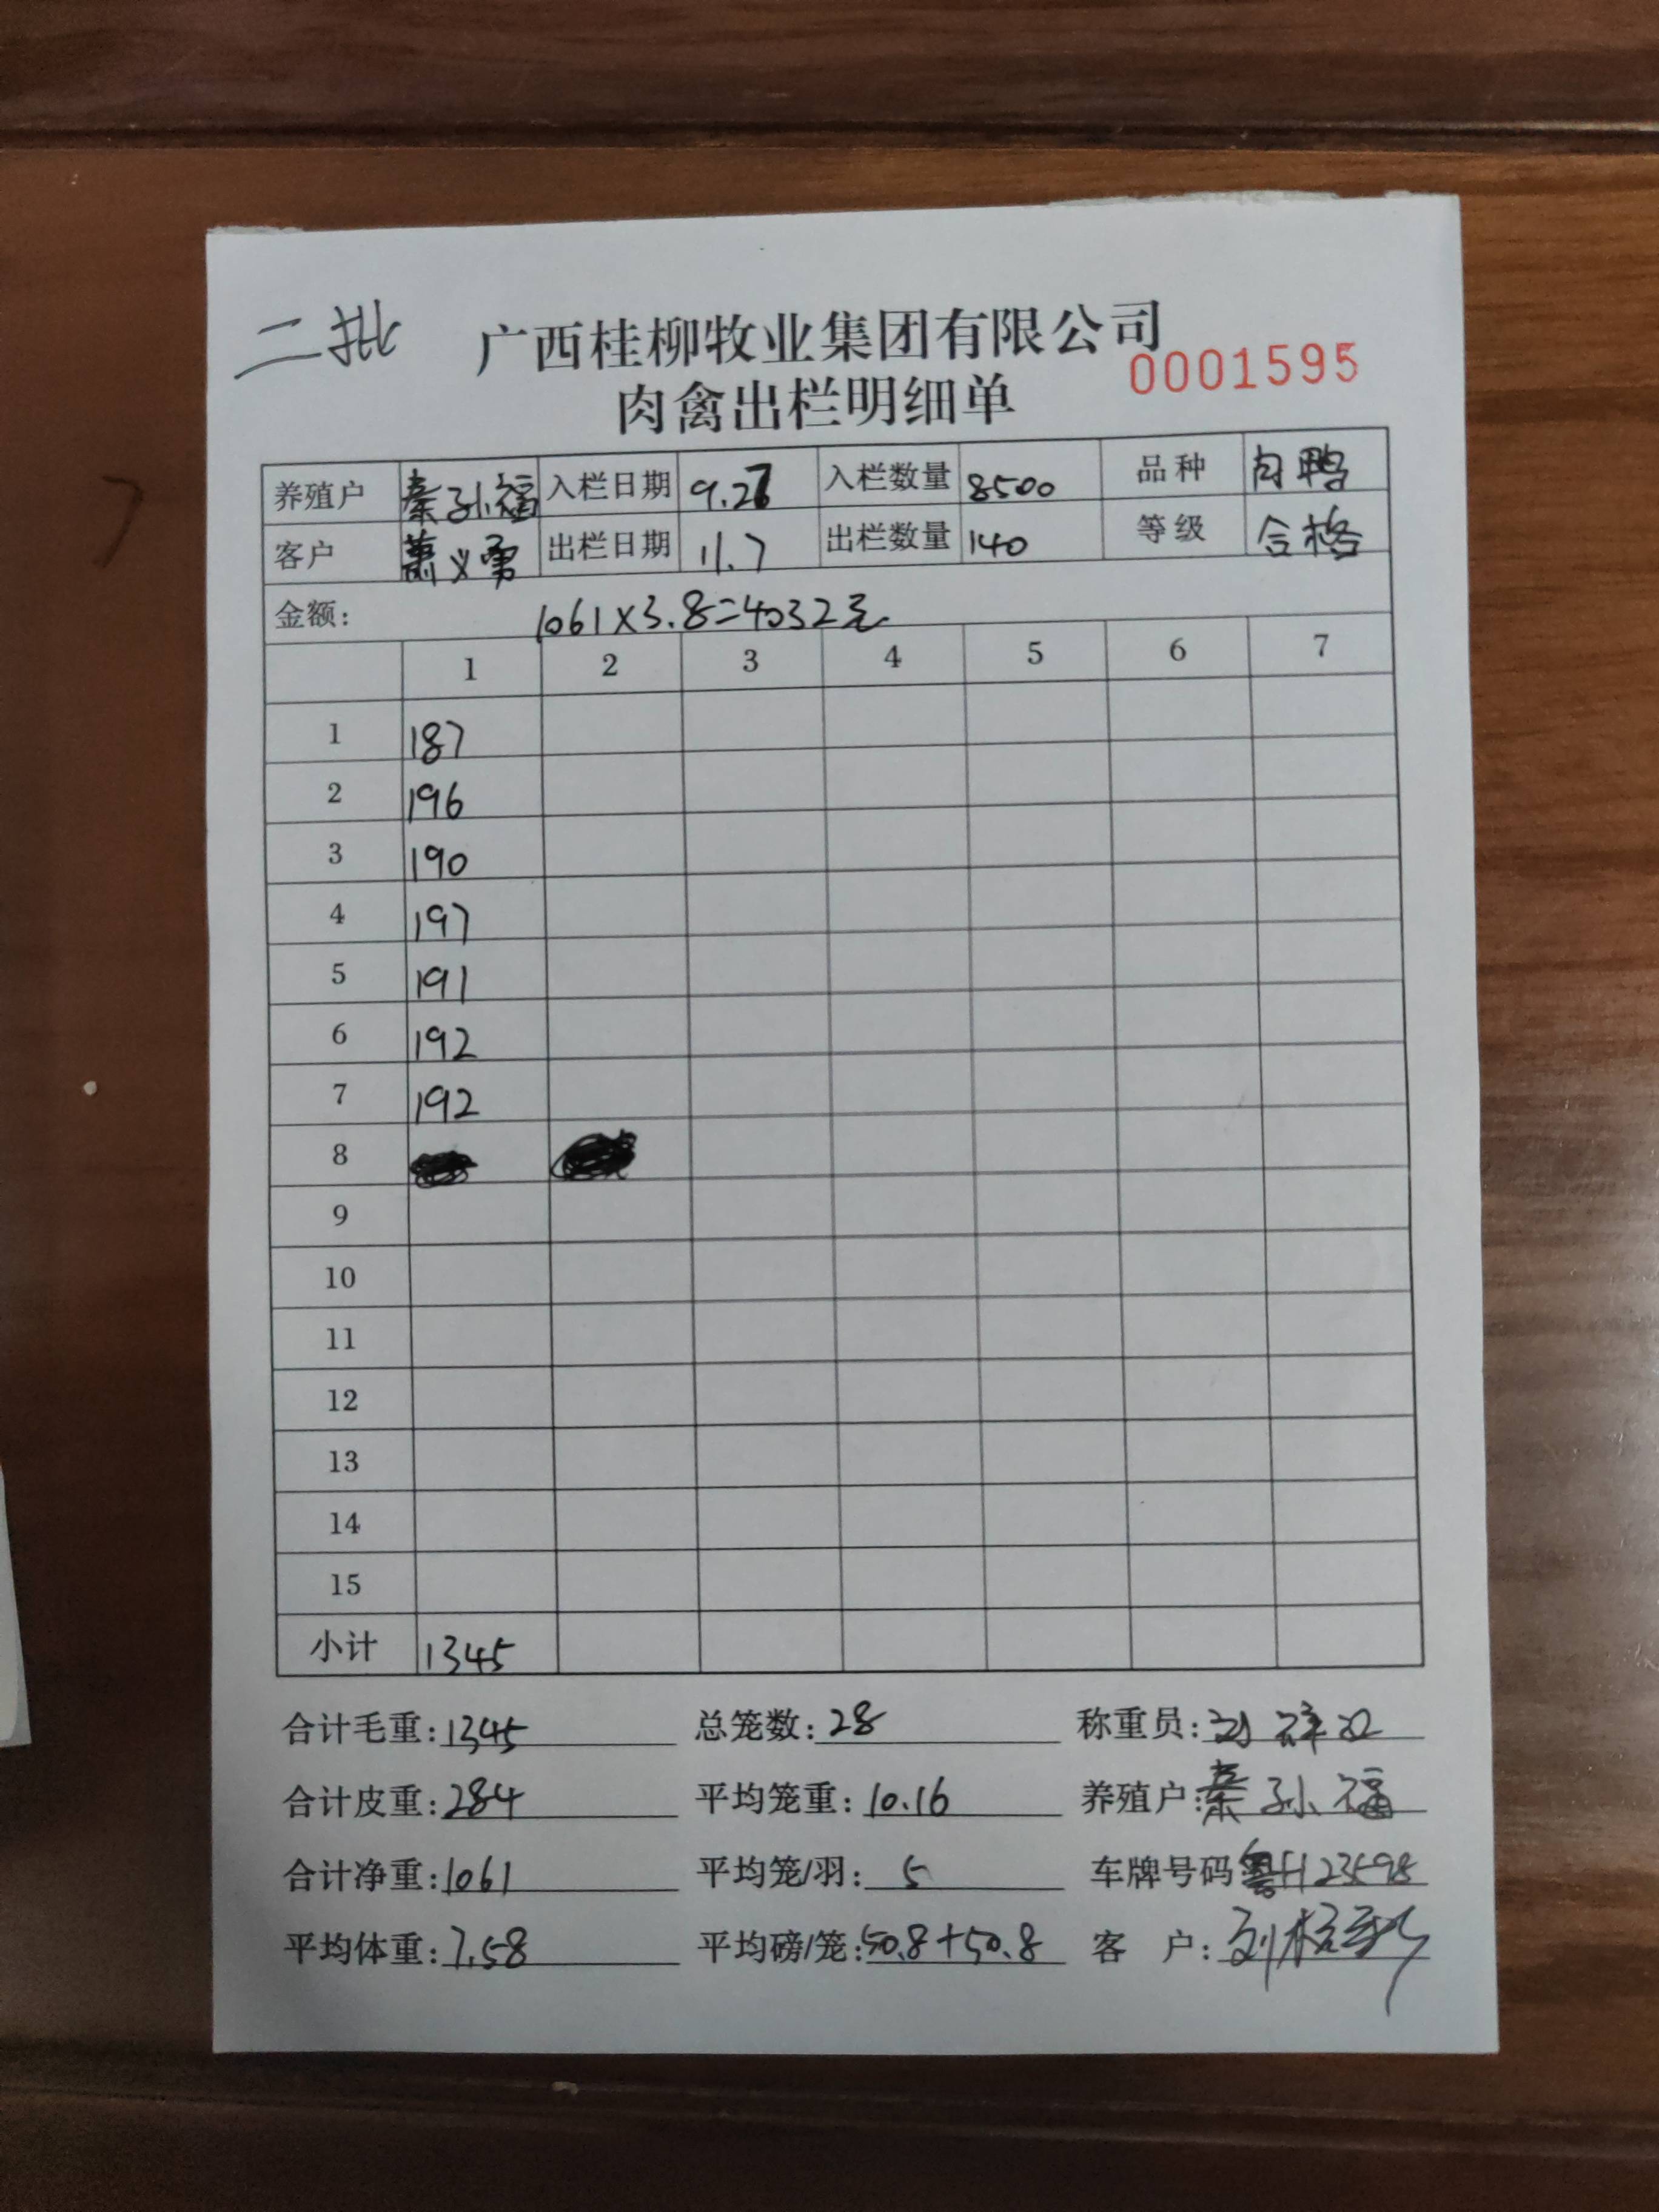 二批
广西桂柳牧业集团有限公司
0001595
肉禽出栏明细单
养殖户 秦孙福 入栏日期 9.27 入栏数量 8500 品种 肉鸭
客户 萧义勇 出栏日期 11.7 出栏数量 140 等级 合格
金额: 1061×3.8=4032元
1 2 3 4 5 6 7
1 187
2 196
3 190
4 197
5 191
6 192
7 192
8
9
10
11
12
13
14
15
小计 1345
合计毛重:1345 总笼数:28 称重员:
合计皮重:284 平均笼重:10.16 养殖户:秦孙福
合计净重:1061 平均笼/羽:5 车牌号码 粤H23598
平均体重:7.58 平均磅/笼:50.8+50.8 客户: